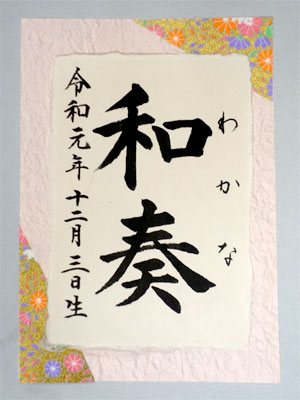 わかな
和奏
令和元年十二月三日生